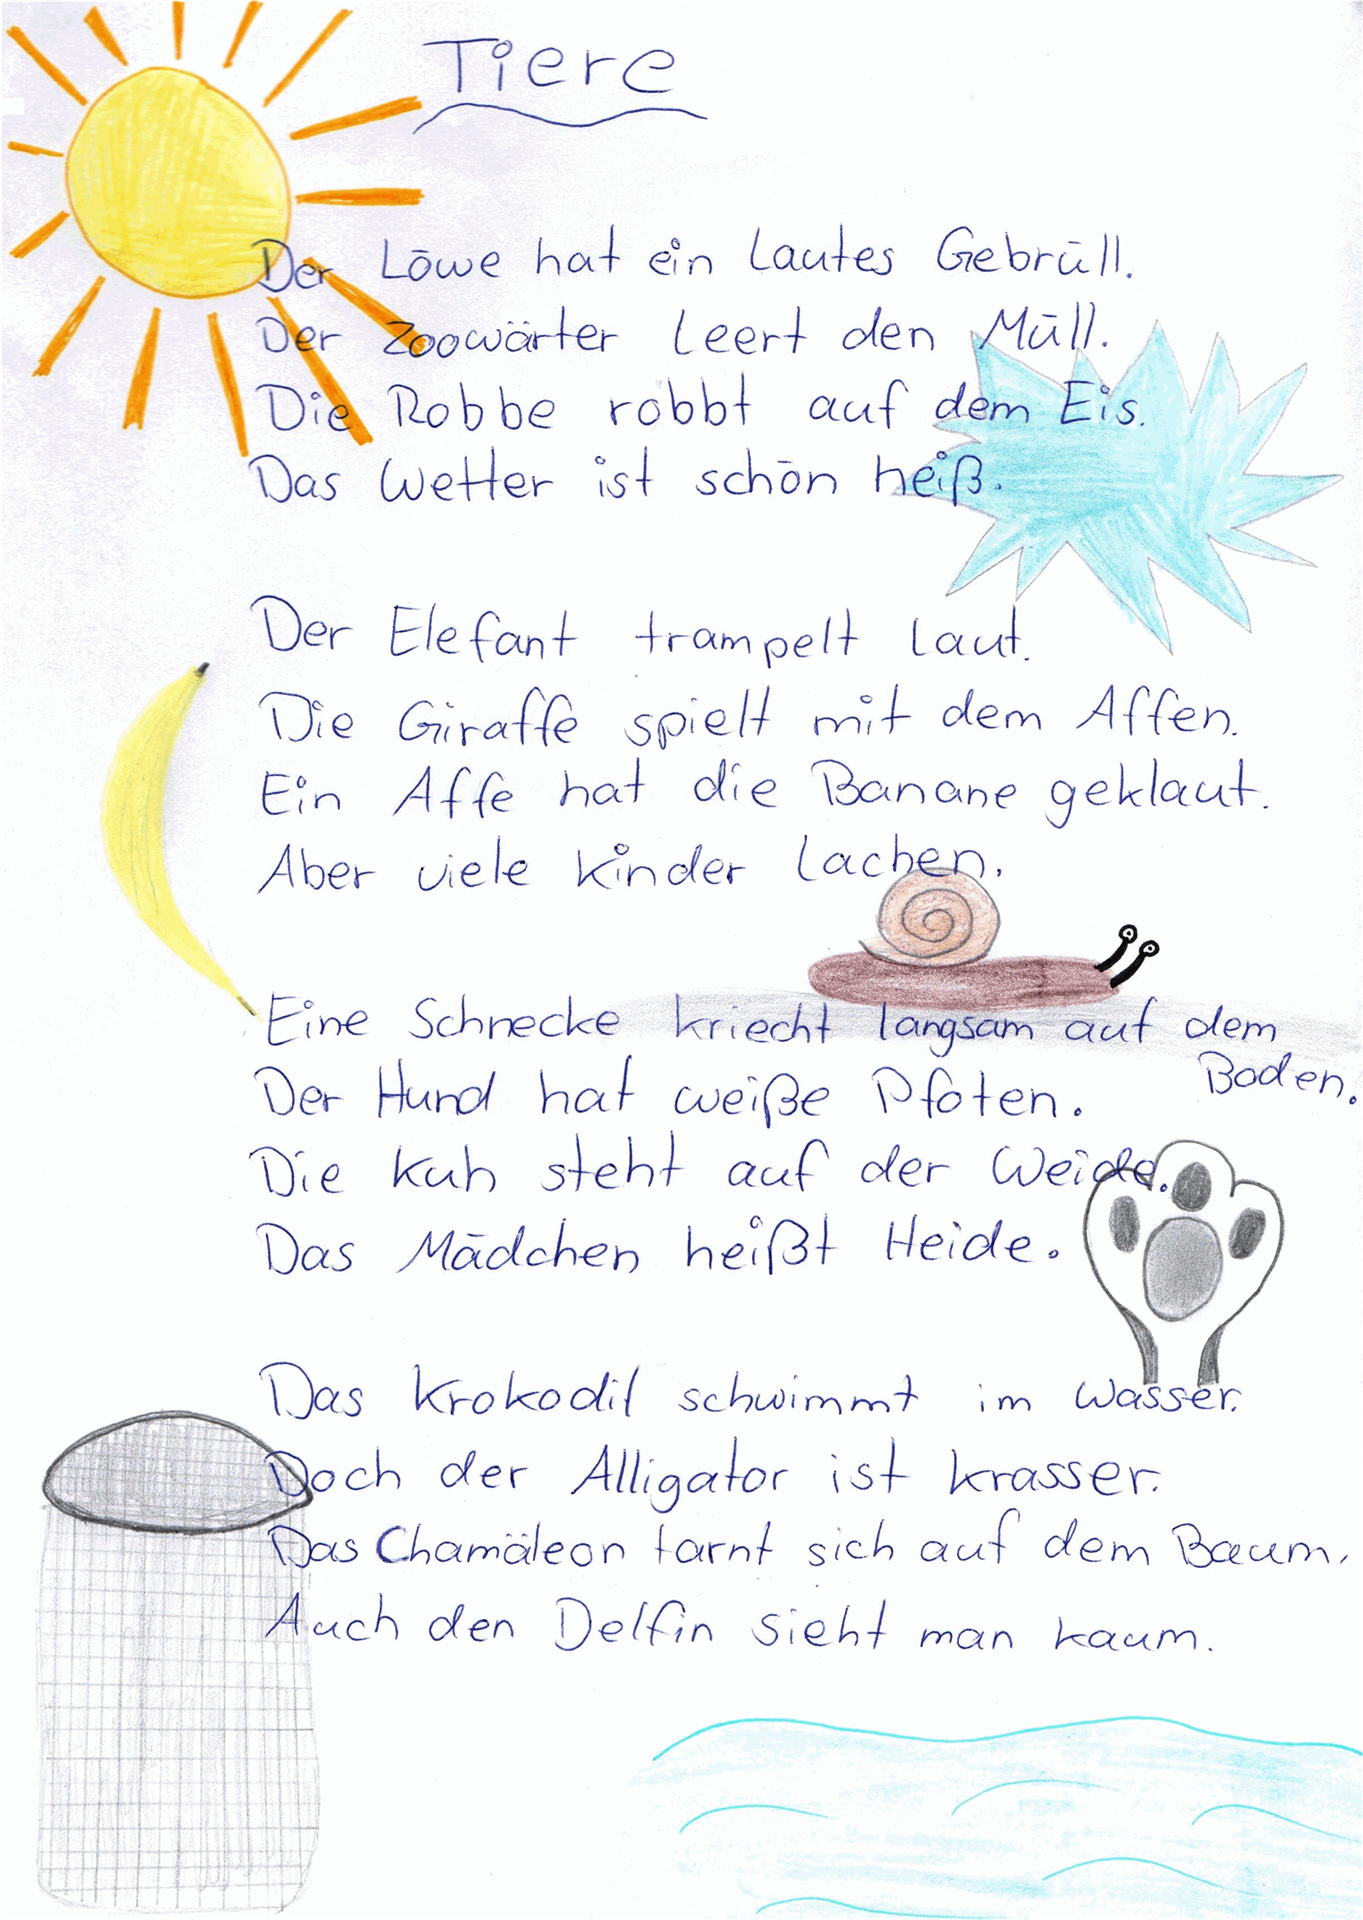 Tiere
Der Löwe hat ein lautes Gebrüll.
Der Zoowärter leert den Müll.
Die Robbe robbt auf dem Eis.
Das Wetter ist schön heiß.
Der Elefant trampelt laut.
Die Giraffe spielt mit dem Affen.
Ein Affe hat die Banane geklaut.
Aber viele Kinder lachen.
Eine Schnecke kriecht langsam auf dem
Boden.
Der Hund hat weiße Pfoten.
Die Kuh steht auf der Weide.
Das Mädchen heißt Heide.
Das Krokodil schwimmt im Wasser.
Doch der Alligator ist krasser.
Das Chamäleon tarnt sich auf dem Baum.
Auch den Delfin sieht man kaum.